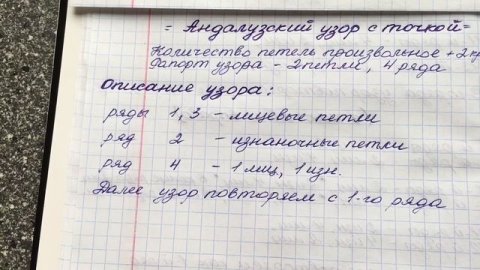 = Андалузский узор с точкой =
Количество петель произвольное + 2 кр
Рапорт узора - 2 петли, 4 ряда
Описание узора:
ряды 1, 3 - лицевые петли
ряд 2 - изнаночные петли
ряд 4 - 1 лиц, 1 изн.
Далее узор повторяем с 1-го ряда